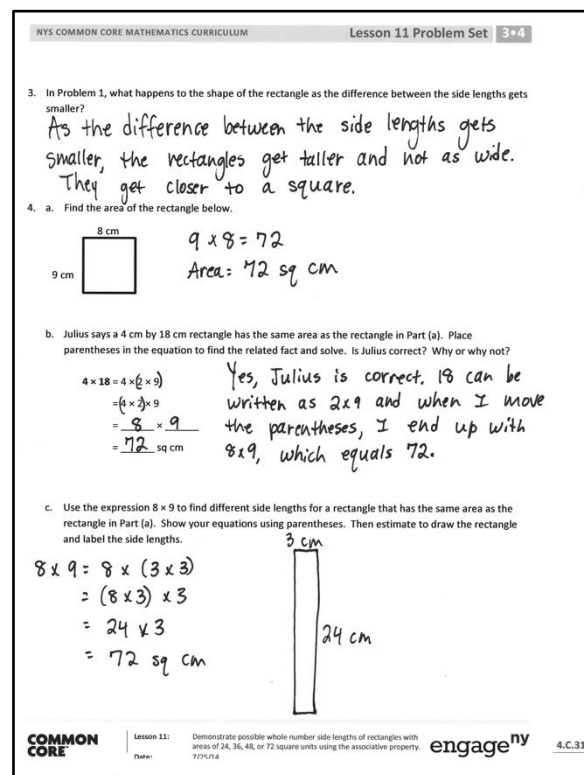 NYS COMMON CORE MATHEMATICS CURRICULUM
Lesson 11 Problem Set 3•4
3. In Problem 1, what happens to the shape of the rectangle as the difference between the side lengths gets
smaller?
As the difference between the side lengths gets
smaller, the rectangles get taller and not as wide.
They get closer to a square.
4. a. Find the area of the rectangle below.
8 cm
9 cm
9 x 8 = 72
Area: 72 sq cm
b. Julius says a 4 cm by 18 cm rectangle has the same area as the rectangle in Part (a). Place
parentheses in the equation to find the related fact and solve. Is Julius correct? Why or why not?
4 × 18 = 4 × (2 × 9)
= (4 × 2) × 9
= 8 × 9
= 72 sq cm
Yes, Julius is correct. 18 can be
written as 2x9 and when I move
the parentheses, I end up with
8x9, which equals 72.
c. Use the expression 8 × 9 to find different side lengths for a rectangle that has the same area as the
rectangle in Part (a). Show your equations using parentheses. Then estimate to draw the rectangle
and label the side lengths.
8 x 9 = 8 x (3 x 3)
= (8 x 3) x 3
= 24 x 3
= 72 sq cm
3 cm
24 cm
COMMON
CORE
Lesson 11:
Date:
Demonstrate possible whole number side lengths of rectangles with
areas of 24, 36, 48, or 72 square units using the associative property.
7/25/14
engage ny
4.C.31